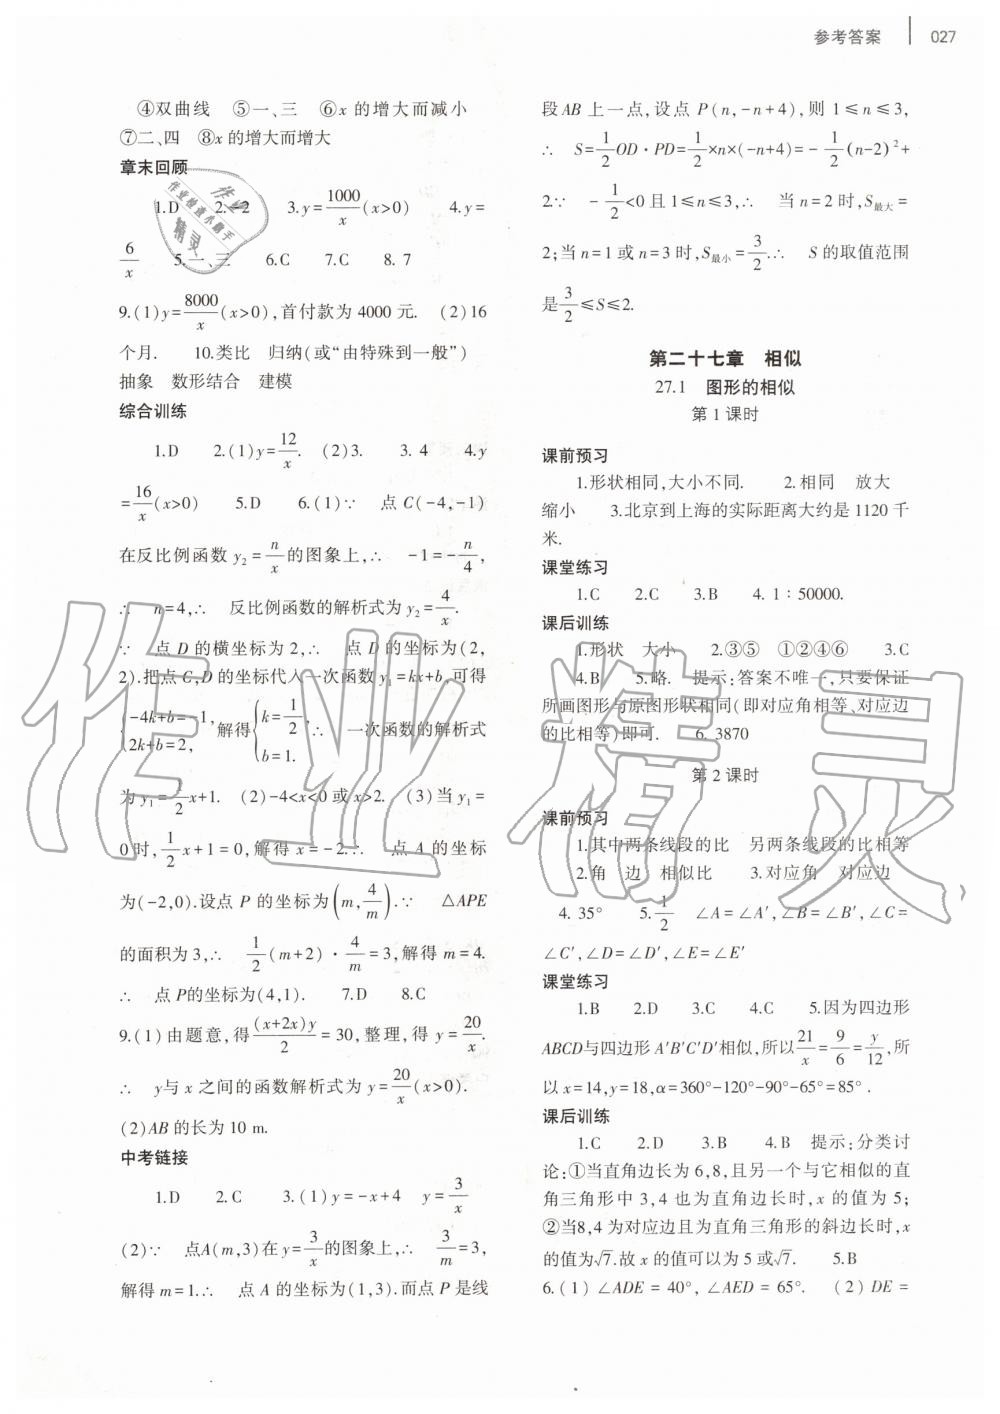 参考答案 027
④双曲线 ⑤一、三 ⑥x 的增大而减小
⑦二、四 ⑧x 的增大而增大
章末回顾
1.D 2.-2 3.y=1000/x(x>0) 4.y=
6/x 5.一、三 6.C 7.C 8.7
9.(1)y=8000/x(x>0),首付款为 4000 元. (2)16
个月. 10.类比 归纳(或“由特殊到一般”)
抽象 数形结合 建模
综合训练
1.D 2.(1)y=12/x. (2)3. 3.4 4.y
=16/x(x>0) 5.D 6.(1)∵ 点 C(-4,-1)
在反比例函数 y₂=n/x的图象上,∴ -1=-n/4,
∴ n=4,∴ 反比例函数的解析式为 y₂=4/x.
∵ 点 D 的横坐标为 2,∴ 点 D 的坐标为(2,
2).把点 C,D 的坐标代入一次函数 y₁=kx+b,可得
{-4k+b=-1, 2k+b=2, 解得{k=1/2, b=1. ∴ 一次函数的解析式
为 y₁=1/2x+1. (2)-4<x<0 或 x>2. (3)当 y₁=
0时,1/2x+1=0,解得 x=-2.∴ 点 A 的坐标
为(-2,0).设点 P 的坐标为(m,4/m).∵ △APE
的面积为 3,∴ 1/2(m+2)·4/m=3,解得 m=4.
∴ 点 P的坐标为(4,1). 7.D 8.C
9.(1)由题意,得(x+2x)y/2=30,整理,得 y=20/x.
∴ y与 x 之间的函数解析式为 y=20/x(x>0).
(2)AB 的长为 10 m.
中考链接
1.D 2.C 3.(1)y=-x+4 y=3/x
(2)∵ 点A(m,3)在 y=3/x的图象上,∴ 3/m=3,
解得 m=1.∴ 点 A 的坐标为(1,3).而点 P 是线
段AB 上一点,设点 P(n,-n+4),则 1≤n≤3,
∴ S=1/2OD·PD=1/2×n×(-n+4)=-1/2(n-2)²+
2.∵ -1/2<0且 1≤n≤3,∴ 当 n=2 时,S最大=
2;当 n=1 或 n=3 时,S最小=3/2.∴ S 的取值范围
是3/2≤S≤2.
第二十七章 相似
27.1 图形的相似
第 1 课时
课前预习
1.形状相同,大小不同. 2.相同 放大
缩小 3.北京到上海的实际距离大约是 1120 千
米.
课堂练习
1.C 2.C 3.B 4.1∶50000.
课后训练
1.形状 大小 2.③⑤ ①②④⑥ 3.C
4.B 5.略. 提示:答案不唯一,只要保证
所画图形与原图形状相同(即对应角相等、对应边
的比相等)即可. 6.3870
第 2 课时
课前预习
1.其中两条线段的比 另两条线段的比相等
2.角 边 相似比 3.对应角 对应边
4.35° 5.1/2 ∠A=∠A′,∠B=∠B′,∠C=
∠C′,∠D=∠D′,∠E=∠E′
课堂练习
1.B 2.D 3.C 4.C 5.因为四边形
ABCD与四边形 A′B′C′D′相似,所以21/x=9/6=y/12,所
以 x=14,y=18,α=360°-120°-90°-65°=85°.
课后训练
1.C 2.D 3.B 4.B 提示:分类讨
论:①当直角边长为 6,8,且另一个与它相似的直
角三角形中 3,4 也为直角边长时,x 的值为 5;
②当8,4 为对应边且为直角三角形的斜边长时,x
的值为√7.故 x 的值可以为 5 或√7. 5.B
6.(1)∠ADE=40°,∠AED=65°. (2)DE=
作业精灵